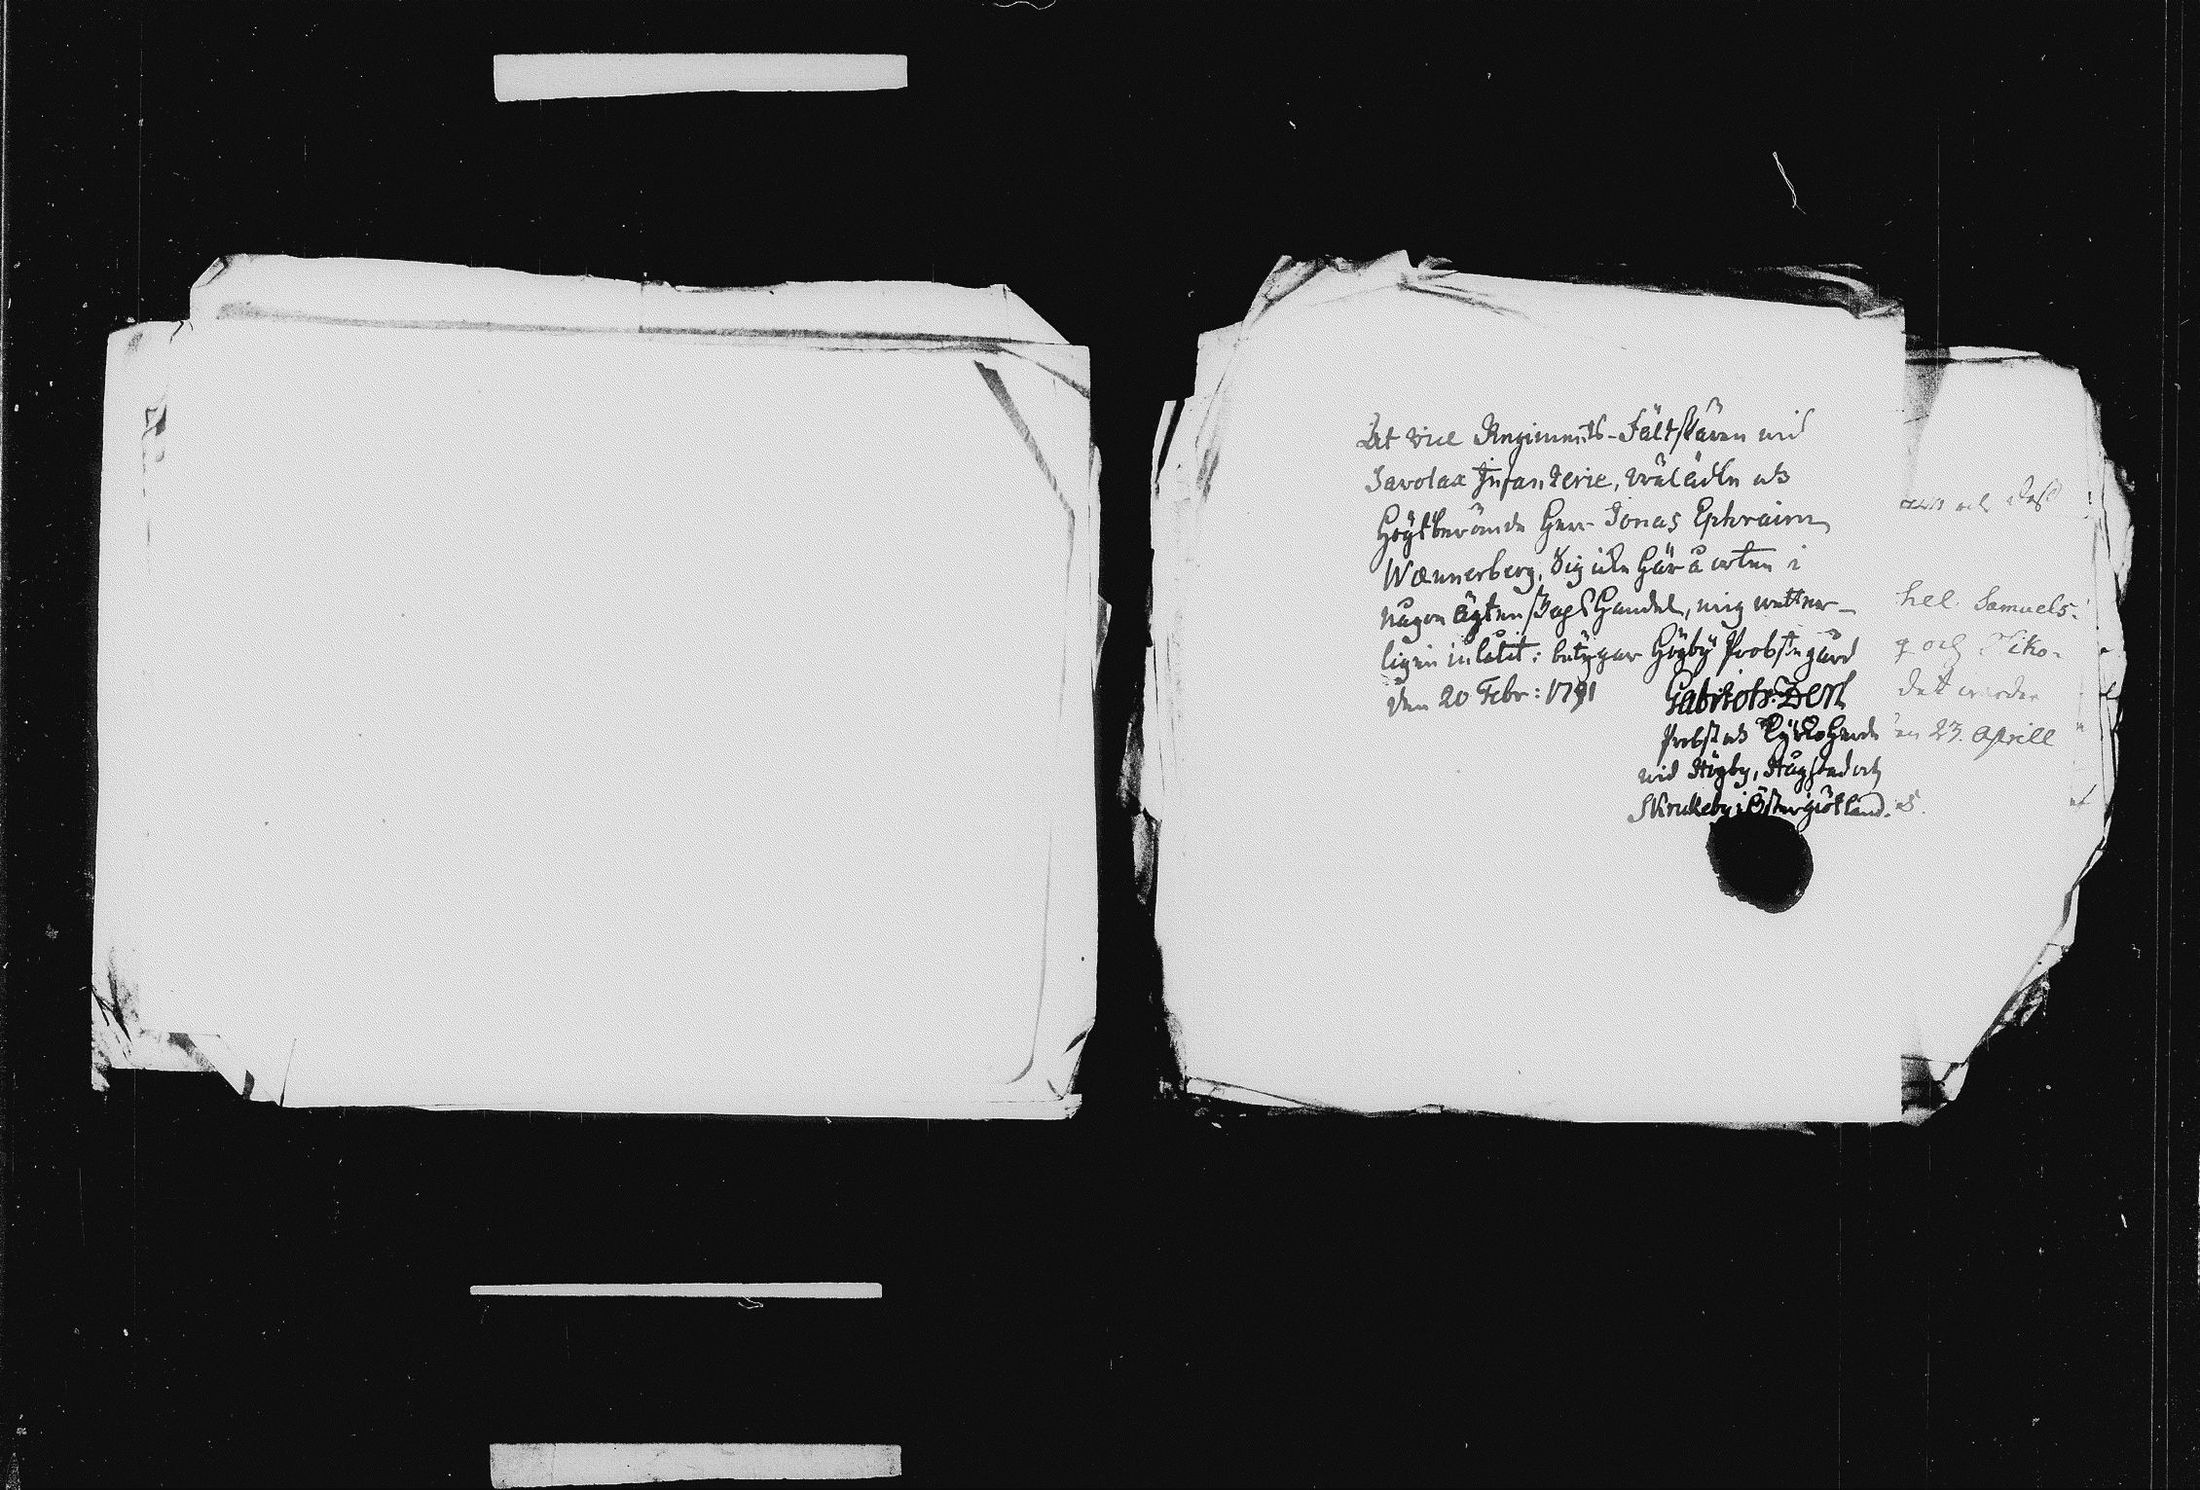 At vice Regiments-Fältskären wid
Savolax Infanterie, wälädle och
Högtberömde Herr Jonas Ephraim
Wænnerberg, sig icke här å orten i
någon ägtenskaps Handel, mig wetter-
ligen inlåtit: betygar Högby Probstegård
den 20 Febr: 1791
Probst och Kyrkoherde
wid Högby, Hagstad och
Skrukeby i Östergiötland.
och dess
hel Samuels-
och
det
en 23. Aprill